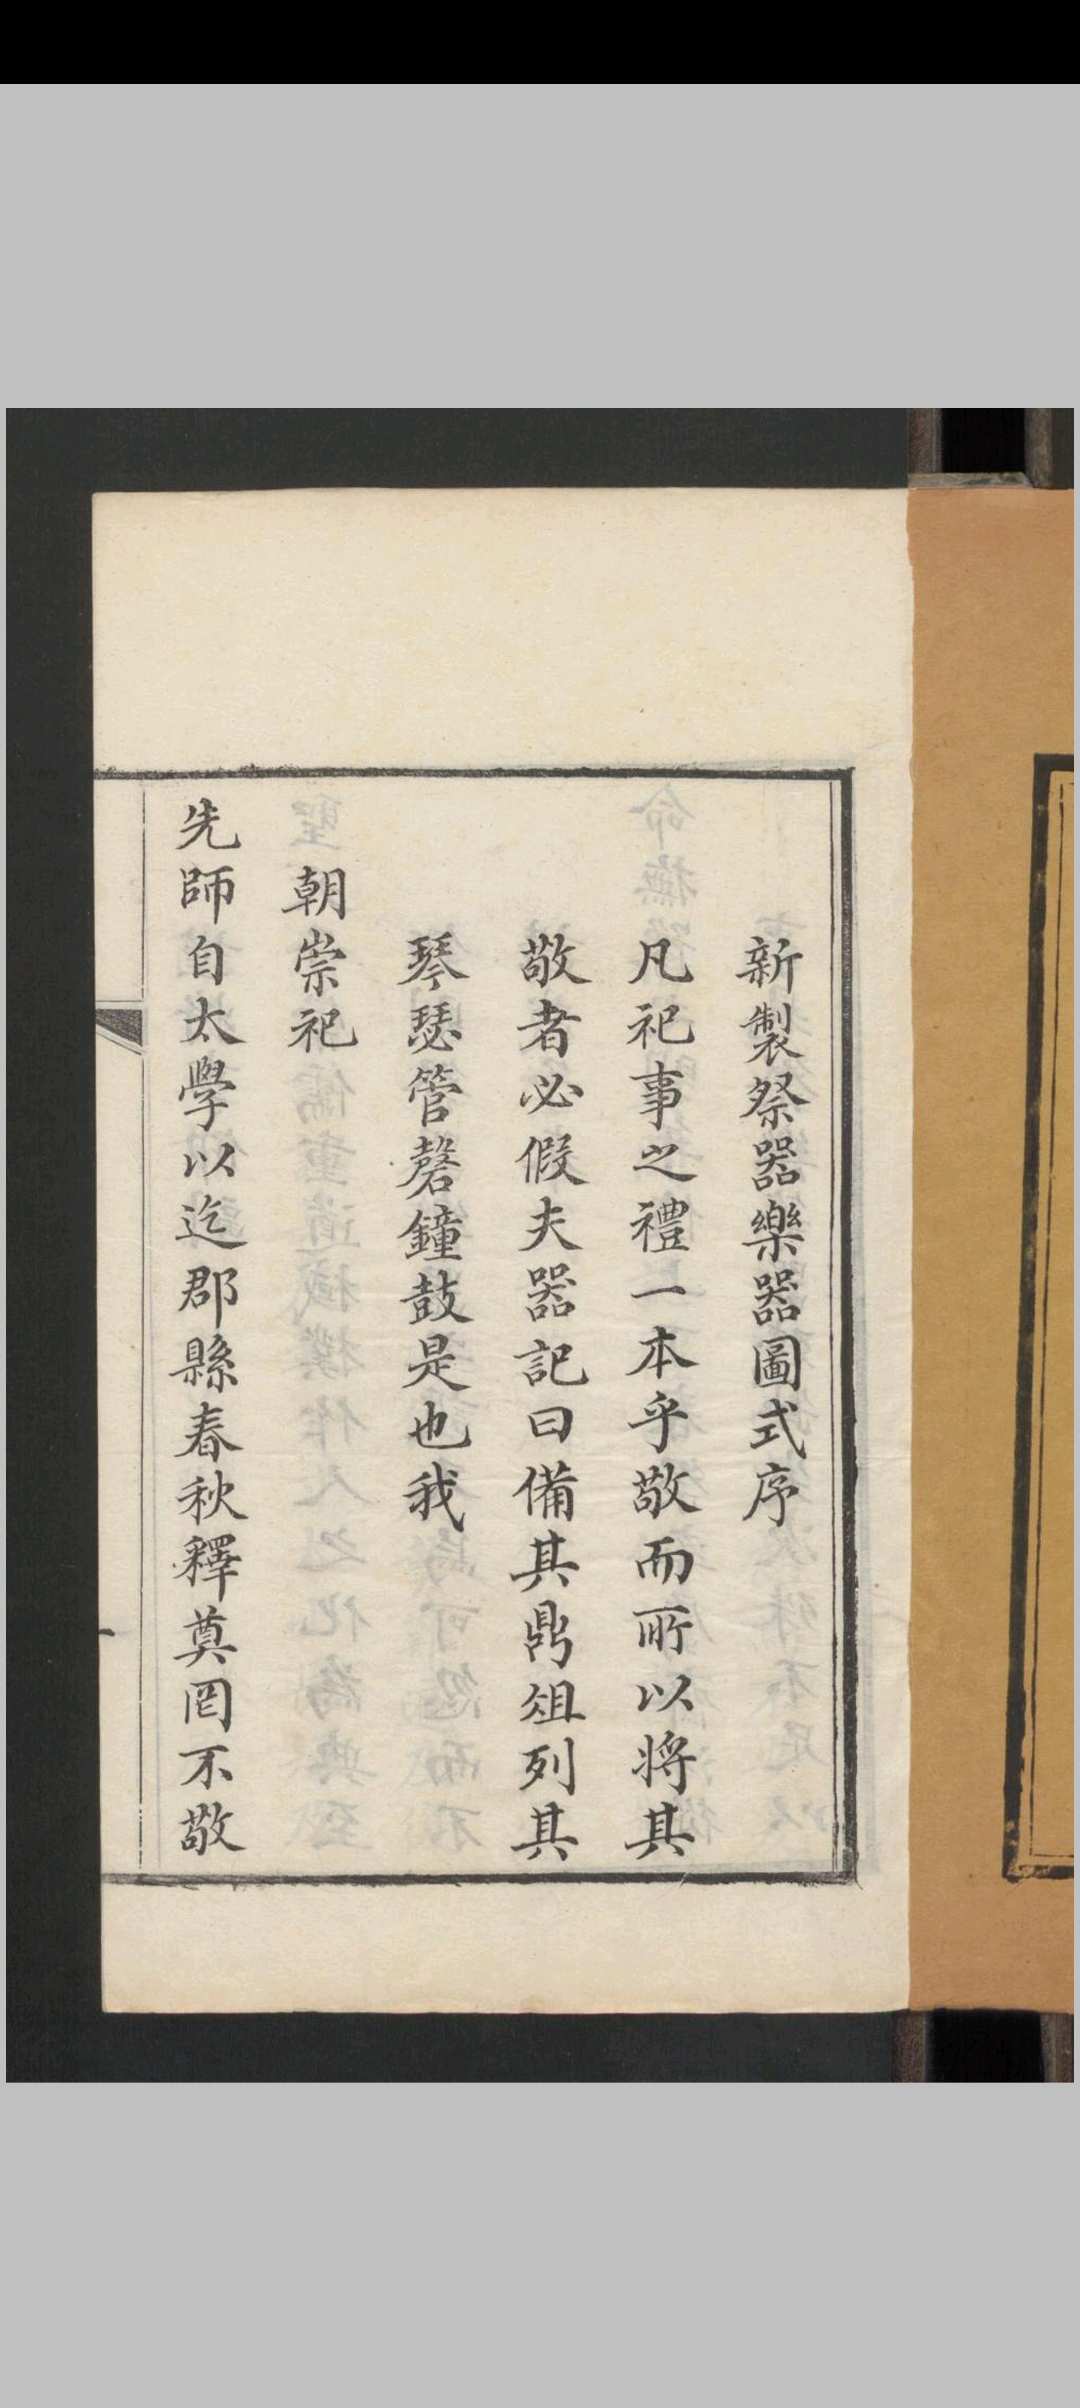 新製祭器樂器圖式序
凡祀事之禮一本乎敬而所以将其
敬者必假夫器記曰備其鼎俎列其
琴瑟管磬鐘鼓是也我
朝崇祀
先師自太學以迄郡縣春秋釋奠罔不敬